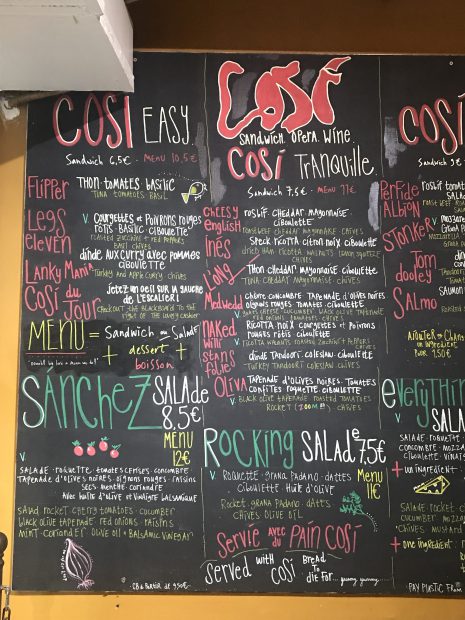 COSÍ EASY
Sandwich 6,5€ - MENU 10,5€
FLIPPER
THON TOMATES BASILIC
TUNA TOMATOES BASIL
LEGS ELEVEN
V. COURGETTES et POIVRONS ROUGES
RÔTIS BASILIC CIBOULETTE
ROASTED ZUCCHINI & RED PEPPERS
BASIL CHIVES
LANKY MANKY
DINDE AUX CURRY AVEC POMMES
CIBOULETTE
TURKEY and APPLE CURRY CHIVES
COSÍ DU JOUR
JETEZ UN OEIL SUR LA GAUCHE
DE L'ESCALIER!
CHECKOUT THE BLACKBOARD TO THE
RIGHT OF THE STAIRS
MENU = Sandwich ou Salade
+ dessert +
boisson
SÁNCHEZ SALADE
8,5€
MENU
12€
V.
SALADE - ROQUETTE - TOMATES CERISES - CONCOMBRE
TAPENADE D'OLIVES NOIRES - OIGNONS ROUGES - RAISINS
SECS - MENTHE - CORIANDRE
AVEC HUILE D'OLIVE et VINAIGRE BALSAMIQUE
SALAD ROCKET CHERRY TOMATOES - CUCUMBER
BLACK OLIVE TAPENADE - RED ONIONS - RAISINS
MINT - CORIANDER OLIVE OIL & BALSAMIC VINEGAR
CB à Partir de
COSÍ
SANDWICH. OPERA. WINE.
COSÍ TRANQUILLE
SANDWICH 7,5€ - MENU 11€
CHEESY ENGLISH
ROSBIF CHEDDAR MAYONNAISE
CIBOULETTE
ROAST BEEF CHEDDAR MAYONNAISE CHIVES
INÈS
SPECK RICOTTA CITRON NOIX CIBOULETTE
L'ONG
THON CHEDDAR MAYONNAISE CIBOULETTE
TUNA CHEDDAR MAYONNAISE CHIVES
MEDWEDD
CHÈVRE CONCOMBRE TAPENADE D'OLIVES NOIRES
OIGNONS ROUGES TOMATES CIBOULETTE
V. GOATS CHEESE CUCUMBER BLACK OLIVE TAPENADE
RED ONIONS TOMATOES CHIVES
NAKED WILLI
RICOTTA NOIX COURGETTES et POIVRONS
ROUGES RÔTIS CIBOULETTE
V. RICOTTA WALNUTS ROASTED ZUCCHINI & RED PEPPERS CHIVES
STAN'S FOLIES
DINDE TANDOORI COLESLAW CIBOULETTE
TURKEY TANDOORI COLESLAW CHIVES
OLIVA
TAPENADE D'OLIVES NOIRES TOMATES
CONFITES ROQUETTE CIBOULETTE
V. BLACK OLIVE TAPENADE ROASTED TOMATOES
ROCKET (ZOOM) CHIVES
ROCKING SALADE 7,5€
MENU
11€
V. ROQUETTE - GRANA PADANO - DATTES
CIBOULETTE HUILE D'OLIVE
ROCKET - GRANA PADANO - DATES
CHIVES OLIVE OIL
SERVIE AVEC DU PAIN COSÍ
SERVED WITH COSÍ BREAD
TO DIE FOR... yummy yummy...
COSÍ
SANDWICH 9€
PERFIDE ALBION
ROSBIF TOMAT
ROAST BEEF
STONKER
MOZZARE
TOM DOOLEY
SALMO
SALMON
AJOUTER UN
INGRÉDIENT
POUR 1,50€
EVERYTHIN
SALA
SALADE - ROQUETTE -
+ UN INGRÉDIENT
SALADE - ROCKET -
+ one ingredient
PAY PLASTIC FROM